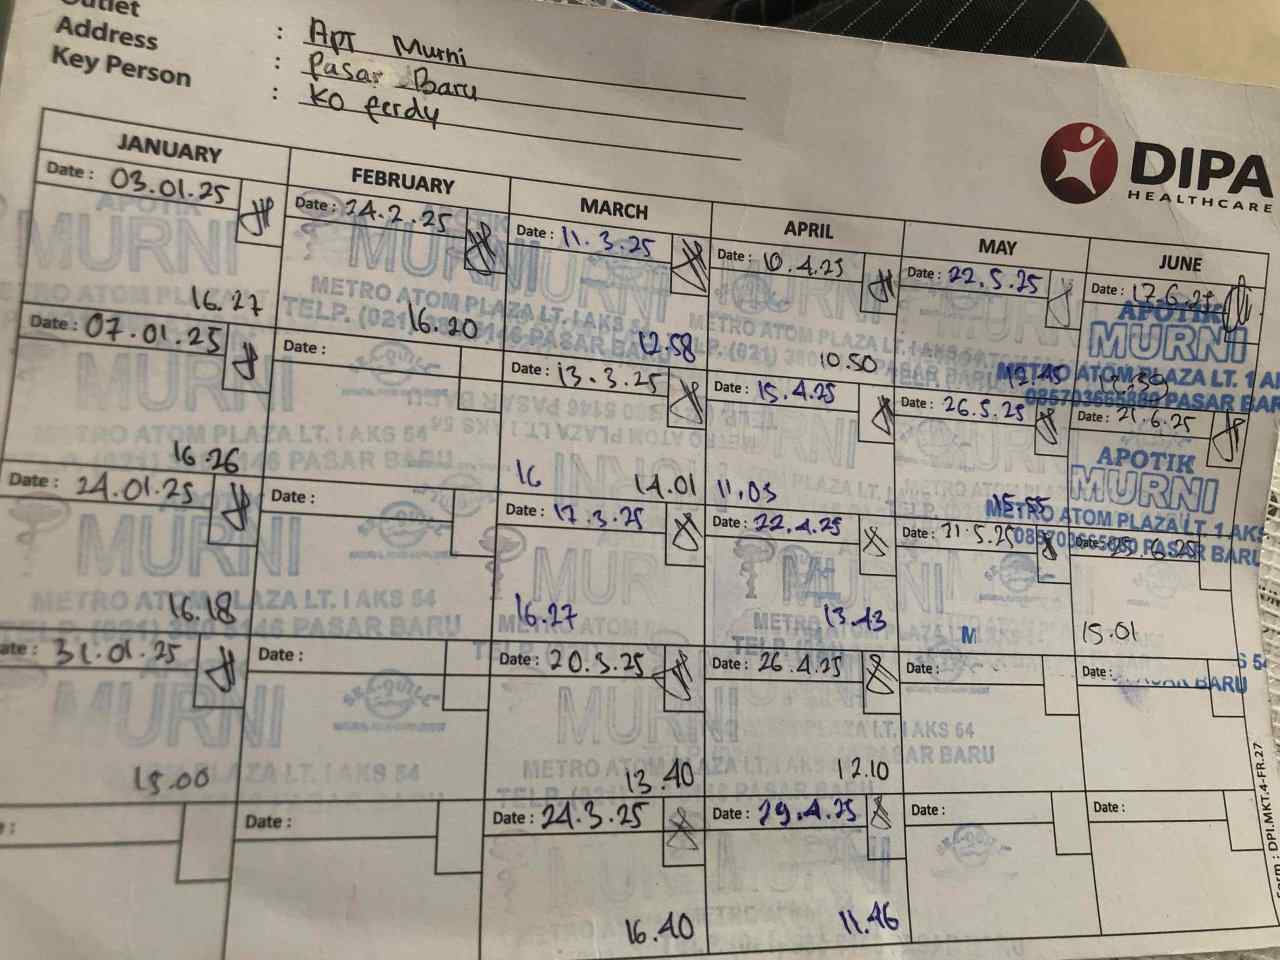 Outlet
Address : Apt Murni
Key Person : Pasar Baru
: Ko ferdy
DIPA
HEALTHCARE
JANUARY FEBRUARY MARCH APRIL MAY JUNE
Date : 03.01.25 Date : 24.2.25 Date : 11.3.25 Date : 10.4.25 Date : 22.5.25 Date :
APOTIK MURNI
METRO ATOM PLAZA LT. I AKS 54
16.27 16.20 12.58 10.50 12.45
Date : 07.01.25 Date : Date : 13.3.25 Date : 15.4.25 Date : 26.5.25 Date : 21.6.25
APOTIK
MURNI
METRO ATOM PLAZA LT. 1 AKS
085703665880 PASAR BARU
16.26 16 14.01 11.03 15.55
Date : 24.01.25 Date : Date : 17.3.25 Date : 22.4.25 Date : 31.5.25 Date :
16.18 16.27 13.43 M 15.01
METRO ATOM PLAZA LT. I AKS 54
PASAR BARU
ate : 31.01.25 Date : Date : 20.3.25 Date : 26.4.25 Date : Date :
MURNI
15.00 13.40 12.10
Date : Date : 24.3.25 Date : 29.4.25 Date : Date :
16.40 11.46
orm : DPI.MKT.4-FR.27